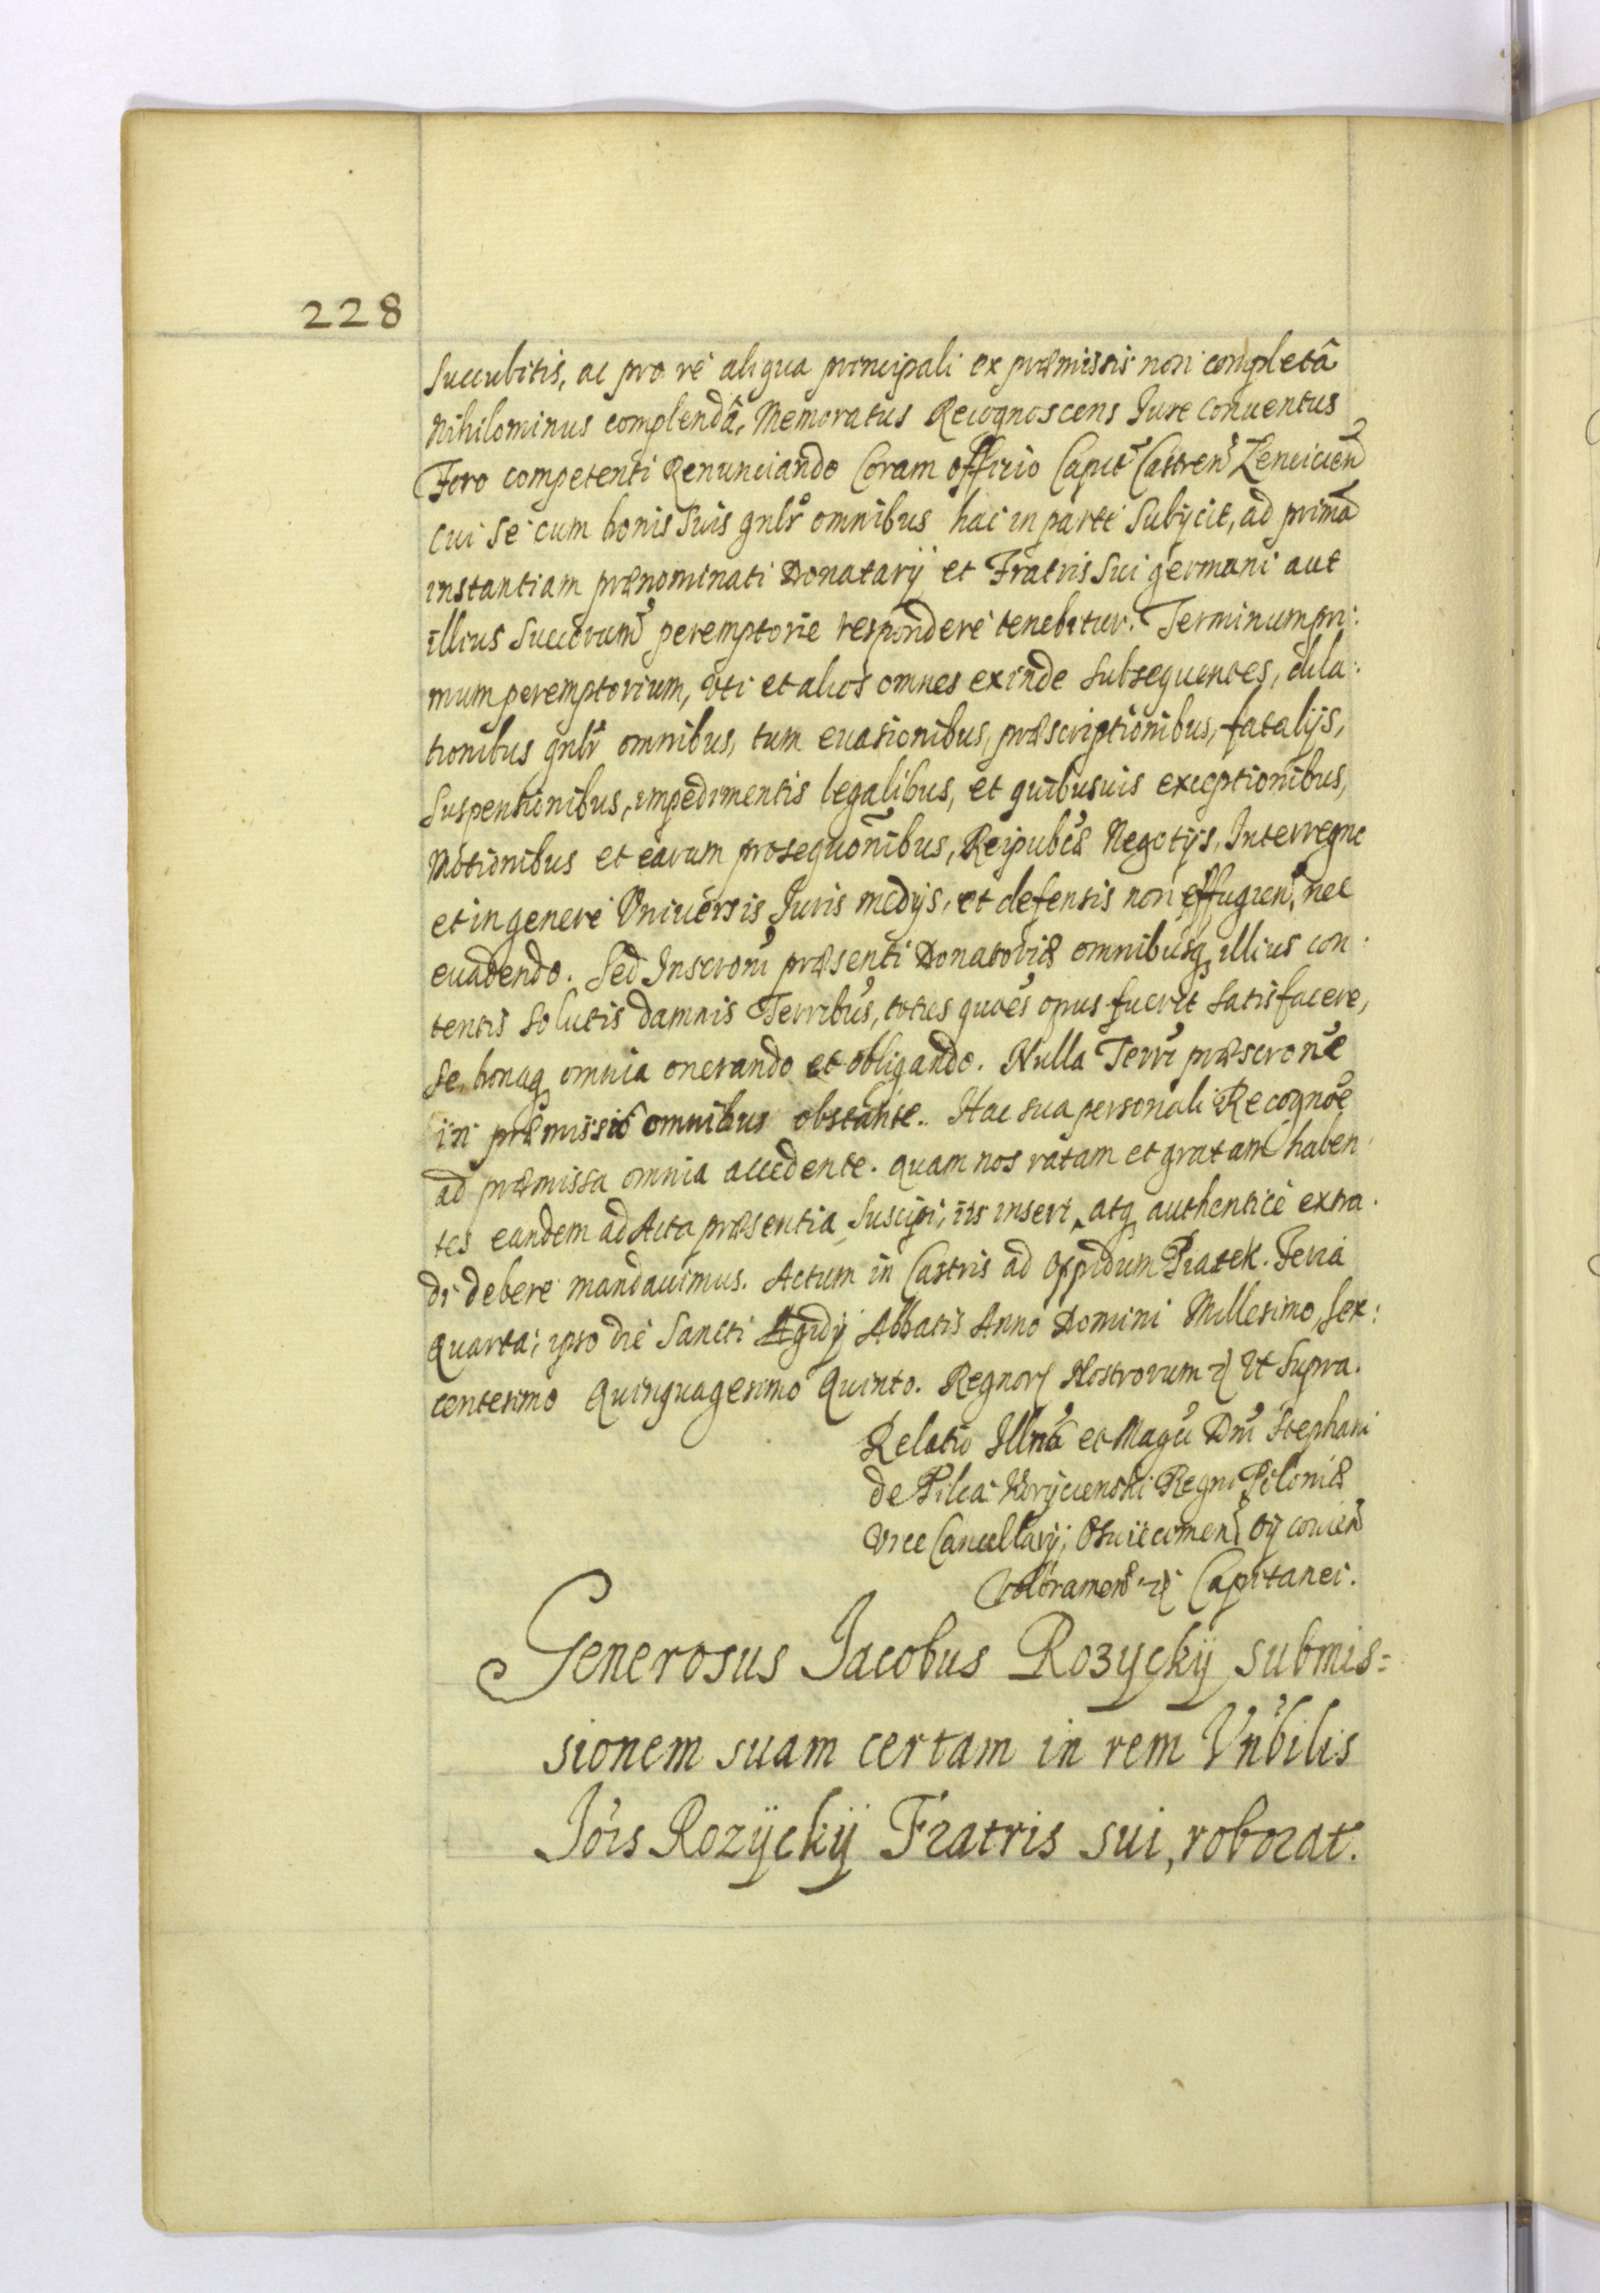 228
succubitis, ac pro re aliqua principali ex præmissis non completâ
nihilominus complendâ, Memoratus Recognoscens Iure conuentus
Foro competenti Renunciando Coram officio Capit Castren Lencicien
cui se cum bonis suis gnlr omnibus hac in parte subijcit, ad primā
instantiam prænominati Donatarij et Fratris sui germani aut
illius succorum peremptorie respondere tenebitur. Terminum pri:
mum peremptorium, vti et alios omnes exinde subsequentes, dila:
tionibus gnlr omnibus, tum euasionibus, præscriptionibus, fatalijs,
suspensionibus, impedimentis legalibus, et quibusuis exceptionibus,
Motionibus et earum prosequōnibus, Reipubcæ Negotijs, Interregno
et in genere Vniuersis Iuris medijs, et defensis non effugien, nec
euadendo. Sed Inscroni præsenti Donatoriæ omnibusq illius con:
tentis solutis damnis Terribus, toties quoes opus fuerit satisfacere,
se bonaq omnia onerando et obligando. Nulla Terri præscrone
in præmissis omnibus obstante. Hac sua personali Recognōe
ad præmissa omnia accedente. quam nos ratam et gratam haben:
tes eandem ad Acta præsentia suscipi, iis inseri, atq authentice extra:
di debere mandauimus. Actum in Castris ad Oppidum Piatek. Feria
Quarta, ipso die Sancti Ægidij Abbatis Anno Domini Millesimo, Sex:
centesimo Quinquagesimo Quinto. Regnorꝝ Nostrorum ꝛc Vt Supra.
Relatio Illris et Magci Dni Stephani
de Pilca Korycienski Regni Poloniæ
Vice Cancellarij,
Capitanei.
Generosus Jacobus Rozyckÿ submis=
sionem suam certam in rem Vnbilis
Jois Rozÿckÿ Fratris sui, roborat.